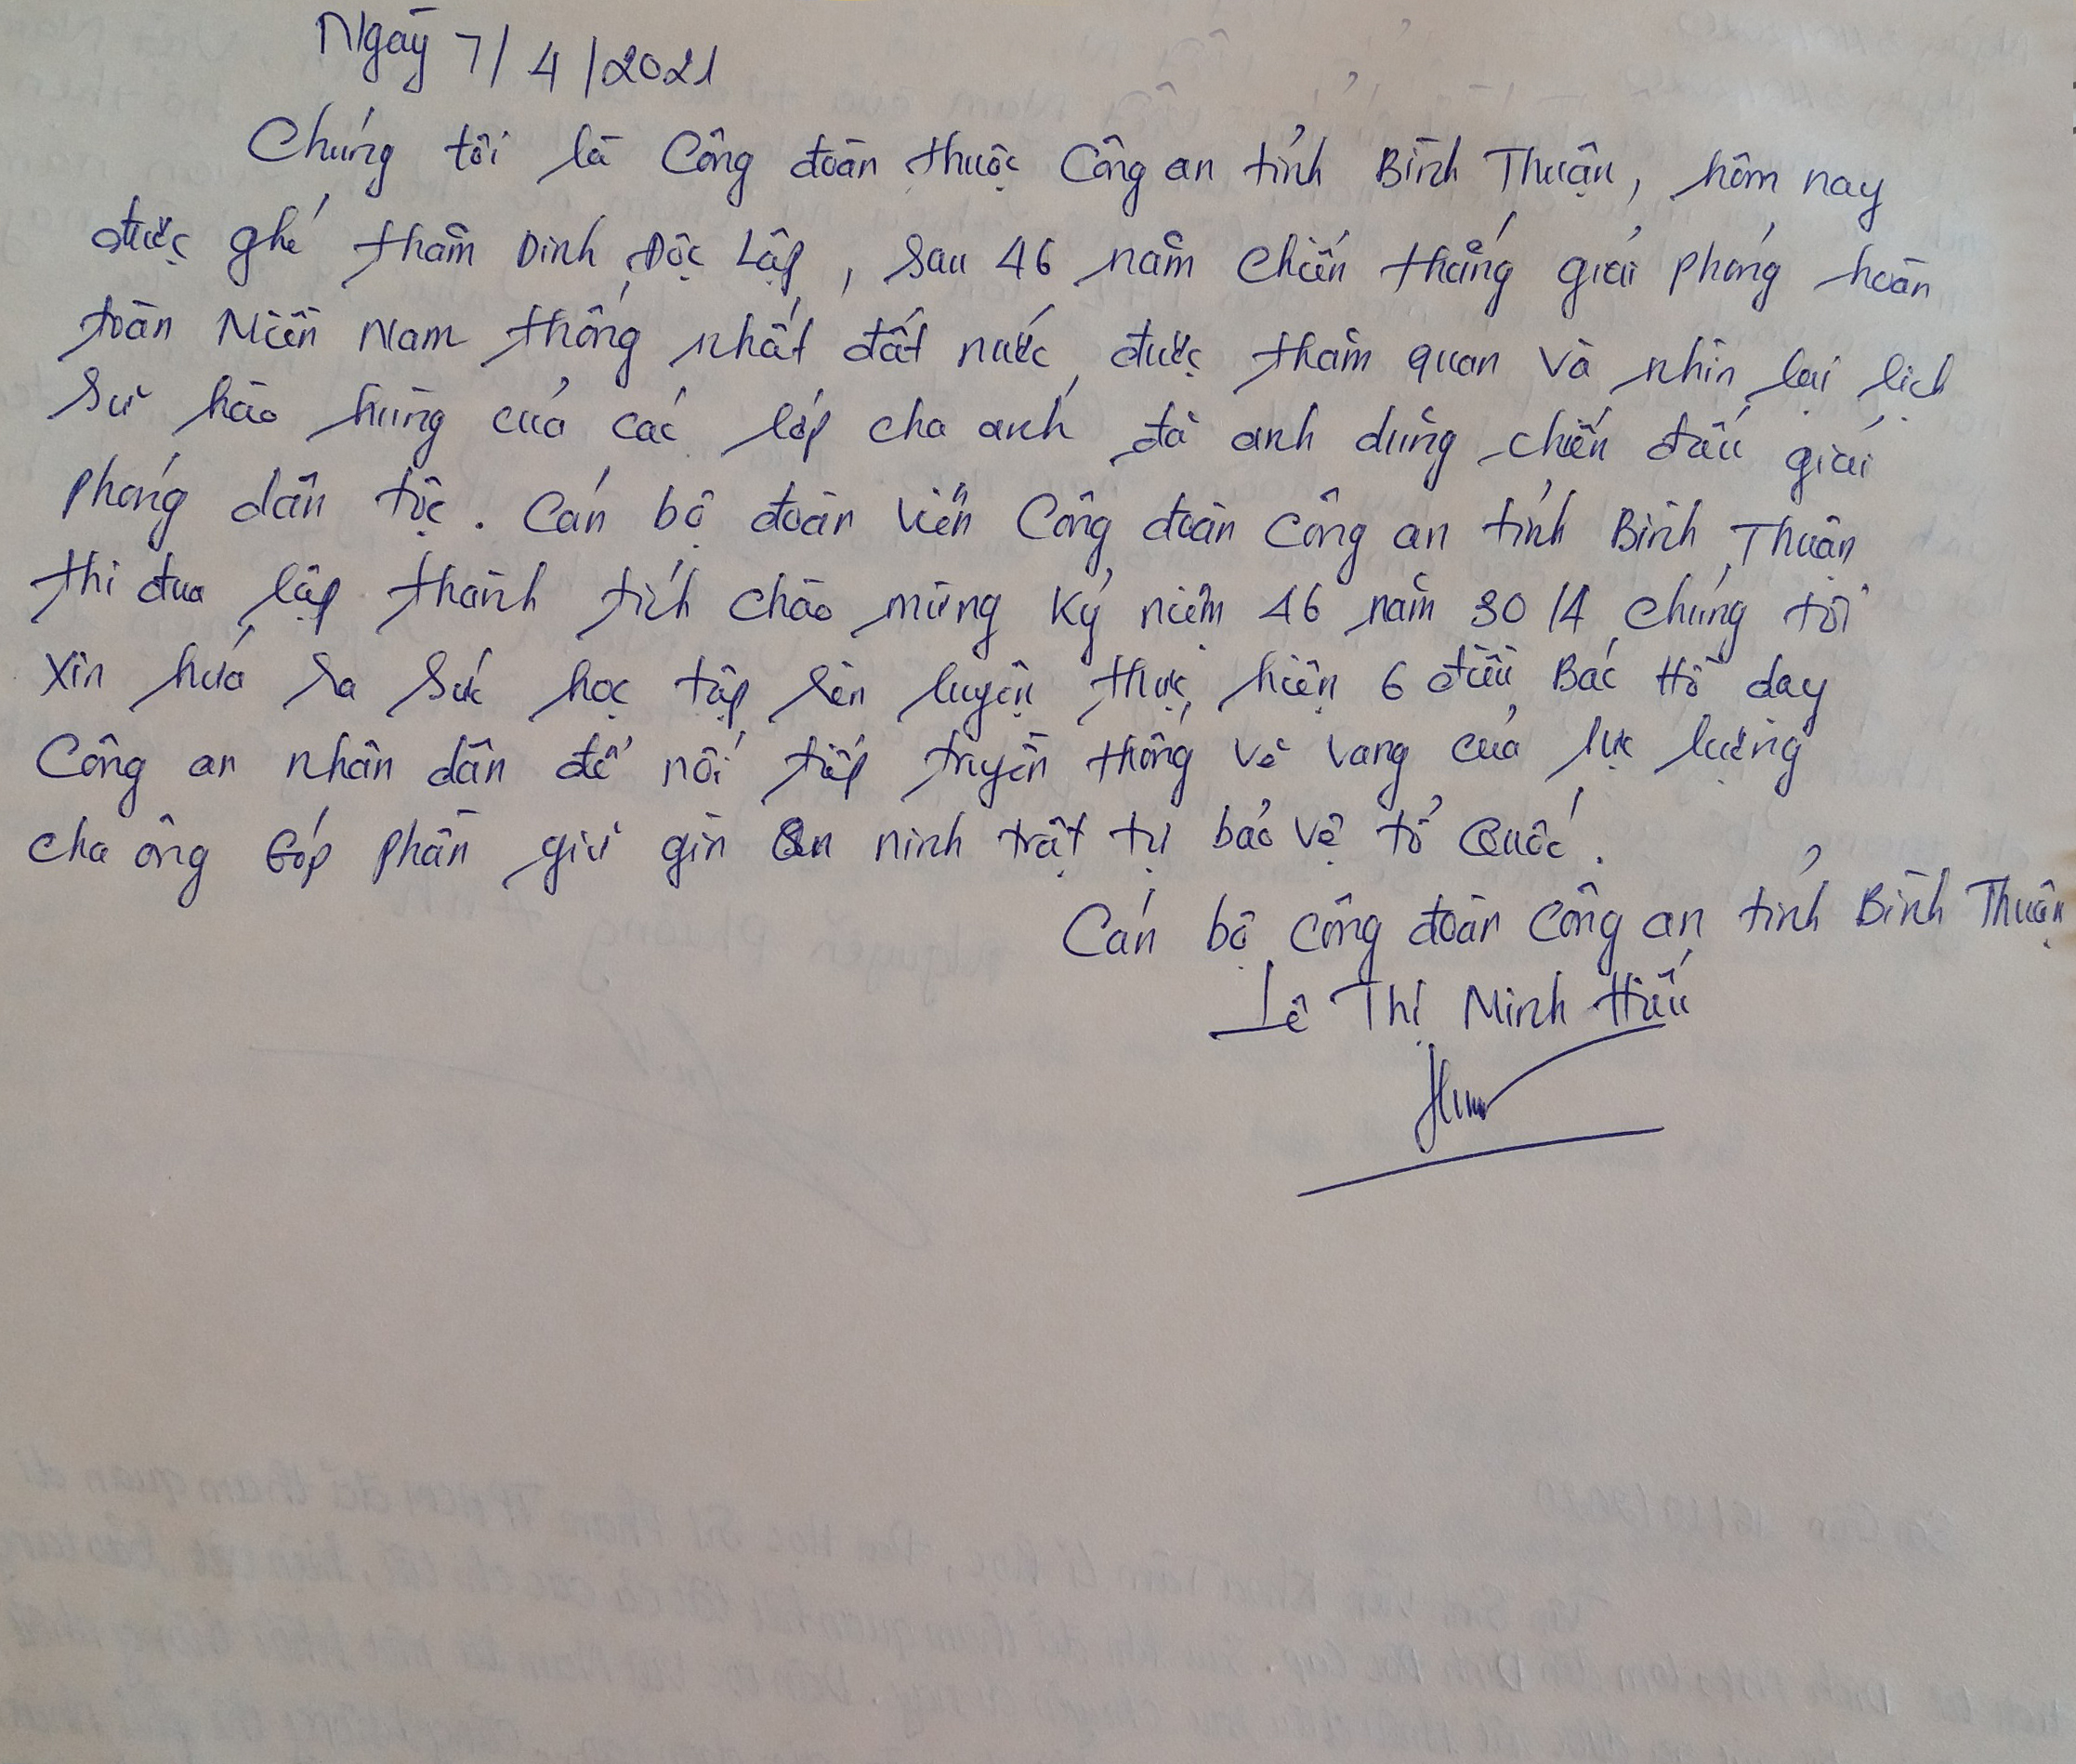 Ngày 7/4/2021
Chúng tôi là Công đoàn thuộc Công an tỉnh Bình Thuận, hôm nay
được ghé thăm Dinh Độc Lập, sau 46 năm chiến thắng giải phóng hoàn
toàn Miền Nam thống nhất đất nước, được thăm quan và nhìn lại lịch
sử hào hùng của các lớp cha anh đã anh dũng chiến đấu giải
phóng dân tộc. Cán bộ đoàn viên Công đoàn Công an tỉnh Bình Thuận
thi đua lập thành tích chào mừng kỷ niệm 46 năm 30/4 chúng tôi
xin hứa ra sức học tập rèn luyện thực hiện 6 điều Bác Hồ dạy
Công an nhân dân để nối tiếp truyền thống vẻ vang của lực lượng
cha ông Góp phần giữ gìn an ninh trật tự bảo vệ tổ Quốc.
Cán bộ công đoàn Công an tỉnh Bình Thuận
Lê Thị Minh Hiếu